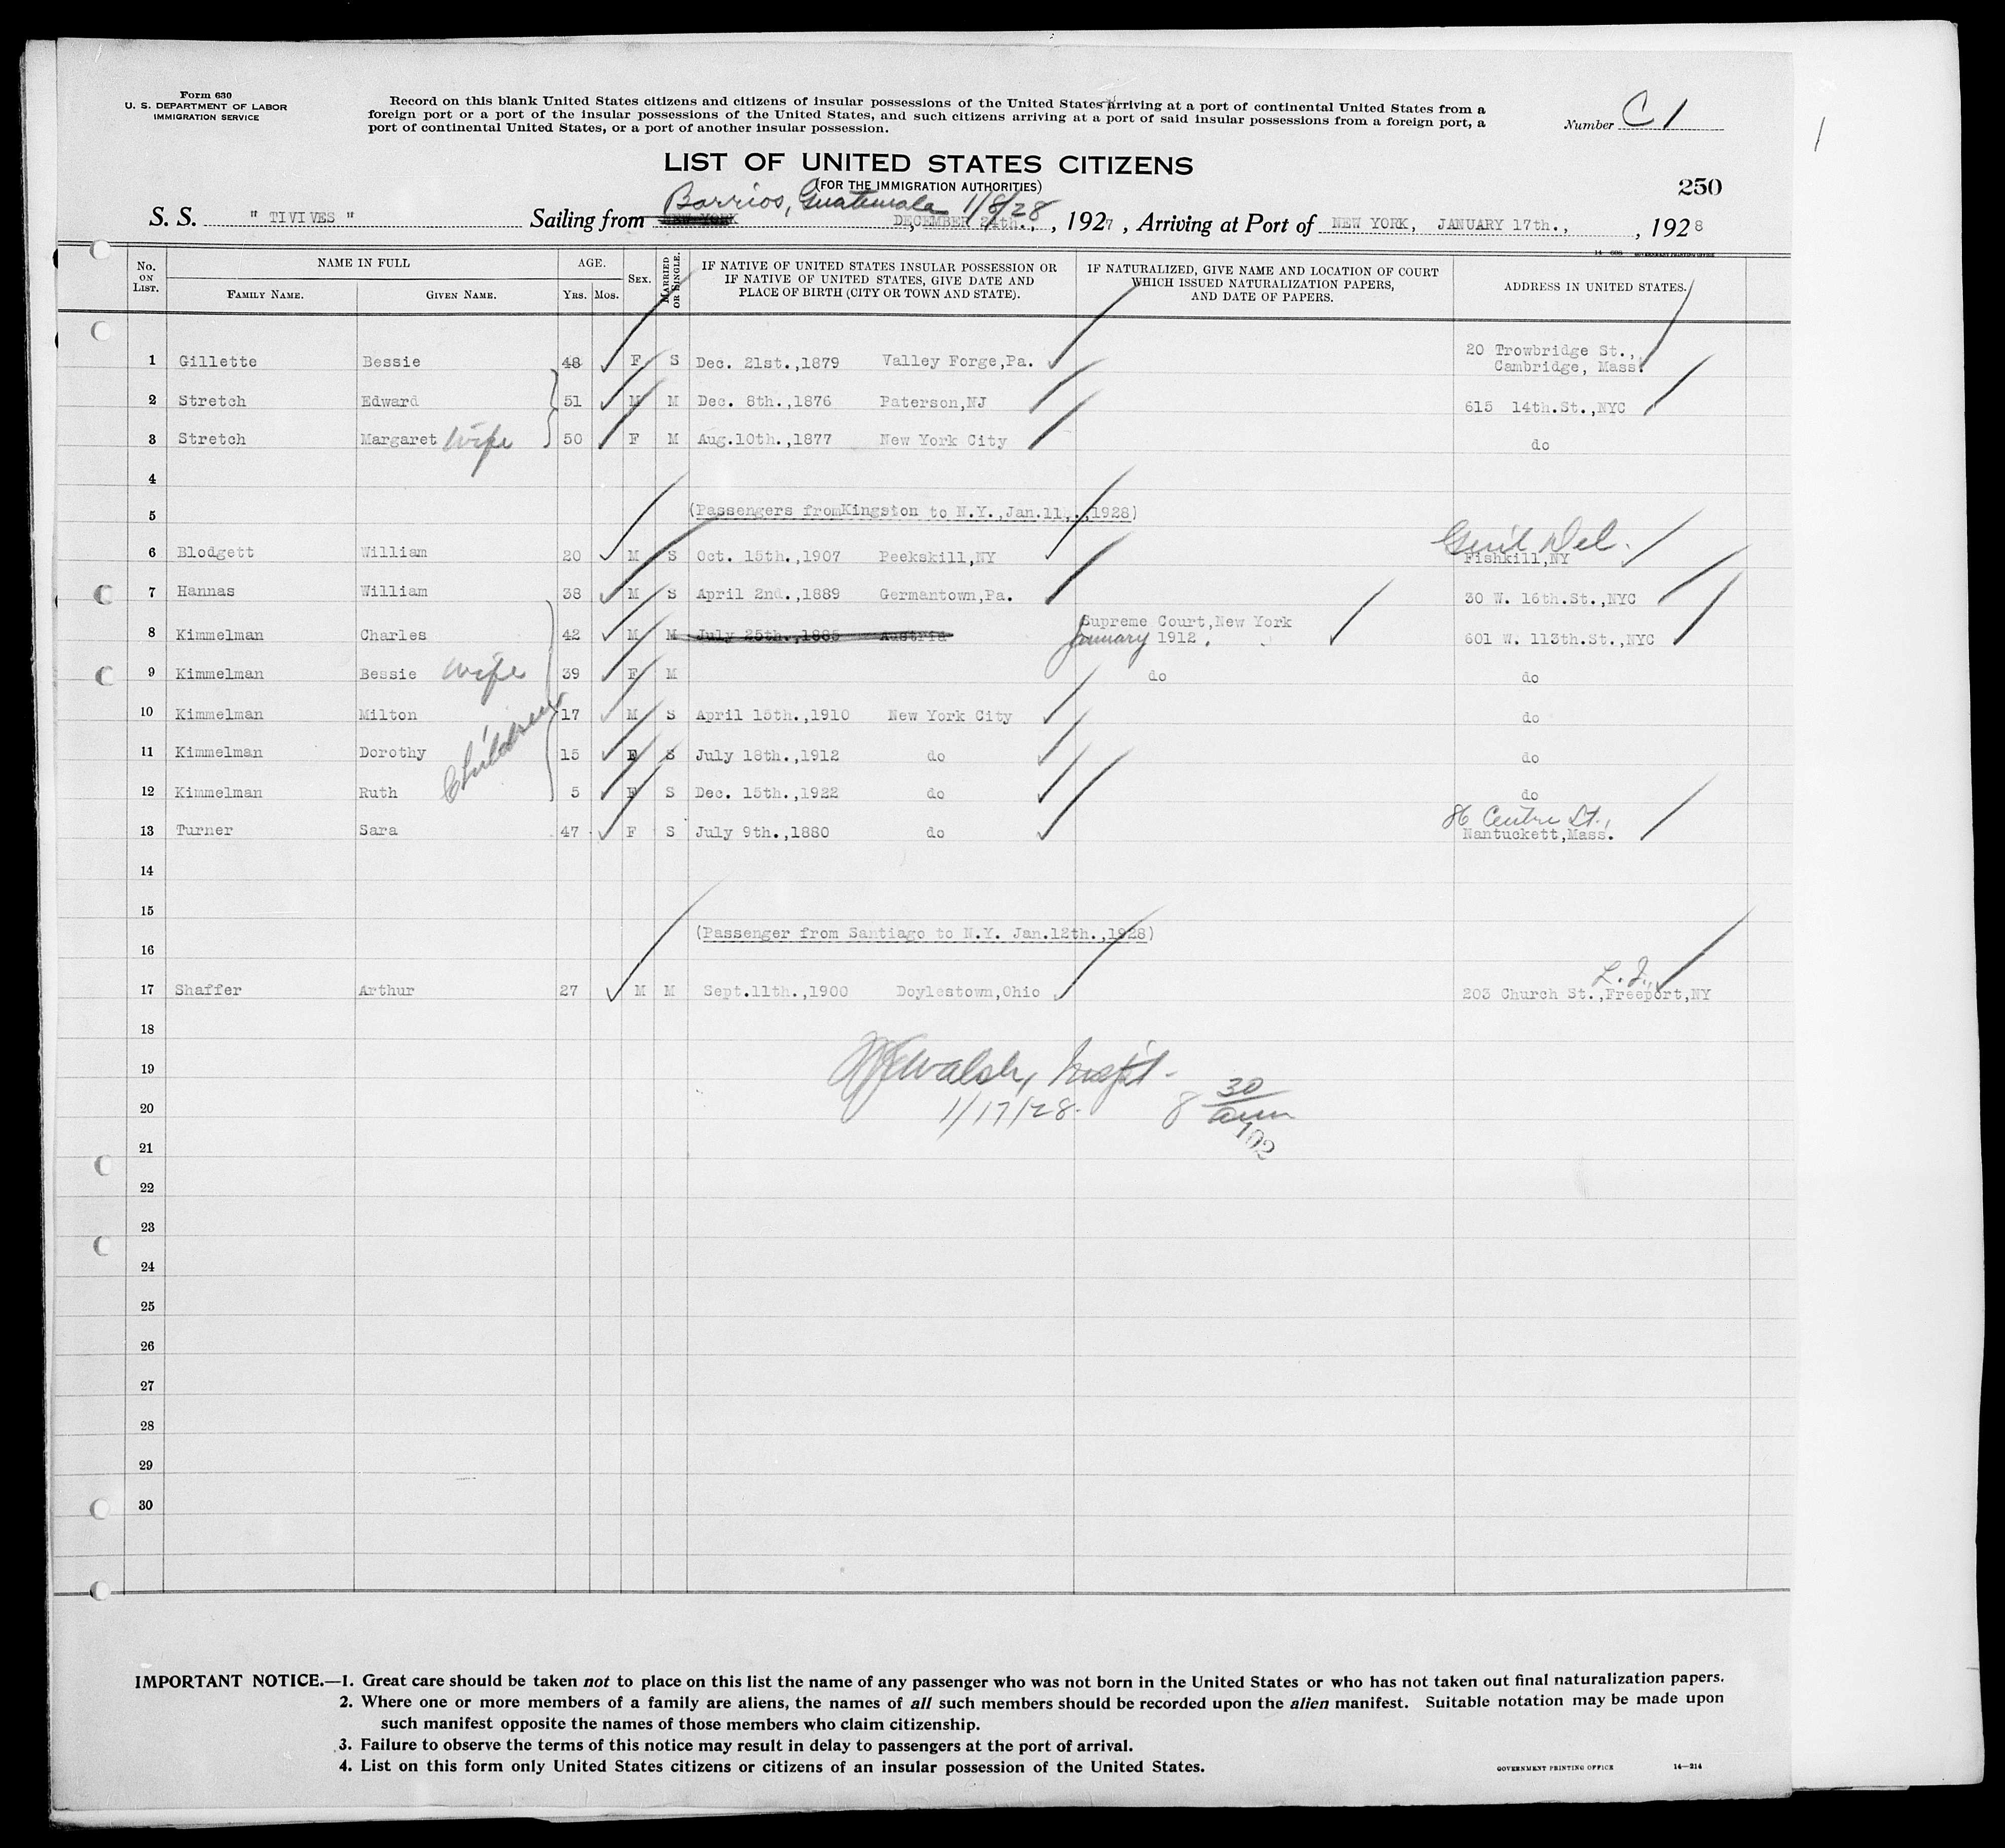 Form 630
U. S. DEPARTMENT OF LABOR
IMMIGRATION SERVICE
Record on this blank United States citizens and citizens of insular possessions of the United States arriving at a port of continental United States from a
foreign port or a port of the insular possessions of the United States, and such citizens arriving at a port of said insular possessions from a foreign port, a
port of continental United States, or a port of another insular possession.
Number C 1
1
LIST OF UNITED STATES CITIZENS
(FOR THE IMMIGRATION AUTHORITIES)
250
Barrios, Guatemala 1/8/28
S. S. " TIVIVES " Sailing from NEW YORK DECEMBER 24th., , 1927 , Arriving at Port of NEW YORK, JANUARY 17th., , 1928
14 GOVERNMENT PRINTING OFFICE
No. ON LIST. NAME IN FULL AGE. SEX. MARRIED OR SINGLE. IF NATIVE OF UNITED STATES INSULAR POSSESSION OR IF NATIVE OF UNITED STATES, GIVE DATE AND PLACE OF BIRTH (CITY OR TOWN AND STATE). IF NATURALIZED, GIVE NAME AND LOCATION OF COURT WHICH ISSUED NATURALIZATION PAPERS, AND DATE OF PAPERS. ADDRESS IN UNITED STATES.
FAMILY NAME. GIVEN NAME. Yrs. Mos.
1 Gillette Bessie 48 F S Dec. 21st.,1879 Valley Forge,Pa. 20 Trowbridge St., Cambridge, Mass.
2 Stretch Edward 51 M M Dec. 8th.,1876 Paterson,NJ 615 14th.St.,NYC
3 Stretch Margaret wife 50 F M Aug.10th.,1877 New York City do
4
5 (Passengers fromKingston to N.Y.,Jan.11,.,1928)
6 Blodgett William 20 M S Oct. 15th.,1907 Peekskill,NY Gen'l Del. Fishkill,NY
7 Hannas William 38 M S April 2nd.,1889 Germantown,Pa. 30 W. 16th.St.,NYC
8 Kimmelman Charles 42 M M July 25th.,1885 Austria Supreme Court,New York January 1912. 601 W. 113th.St.,NYC
9 Kimmelman Bessie wife 39 F M do do
10 Kimmelman Milton 17 M S April 15th.,1910 New York City do
Children
11 Kimmelman Dorothy 15 F S July 18th.,1912 do do
12 Kimmelman Ruth 5 F S Dec. 15th.,1922 do do
13 Turner Sara 47 F S July 9th.,1880 do 86 Centre St., Nantuckett,Mass.
14
15
16 (Passenger from Santiago to N.Y. Jan.12th.,1928)
17 Shaffer Arthur 27 M M Sept.11th.,1900 Doylestown,Ohio L. I., 203 Church St.,Freeport,NY
18
19 Walsh, Inspt.
20 1/17/28. 8 30/am
102
21
22
23
24
25
26
27
28
29
30
IMPORTANT NOTICE.—1. Great care should be taken not to place on this list the name of any passenger who was not born in the United States or who has not taken out final naturalization papers.
2. Where one or more members of a family are aliens, the names of all such members should be recorded upon the alien manifest. Suitable notation may be made upon
such manifest opposite the names of those members who claim citizenship.
3. Failure to observe the terms of this notice may result in delay to passengers at the port of arrival.
4. List on this form only United States citizens or citizens of an insular possession of the United States.
GOVERNMENT PRINTING OFFICE 14—214